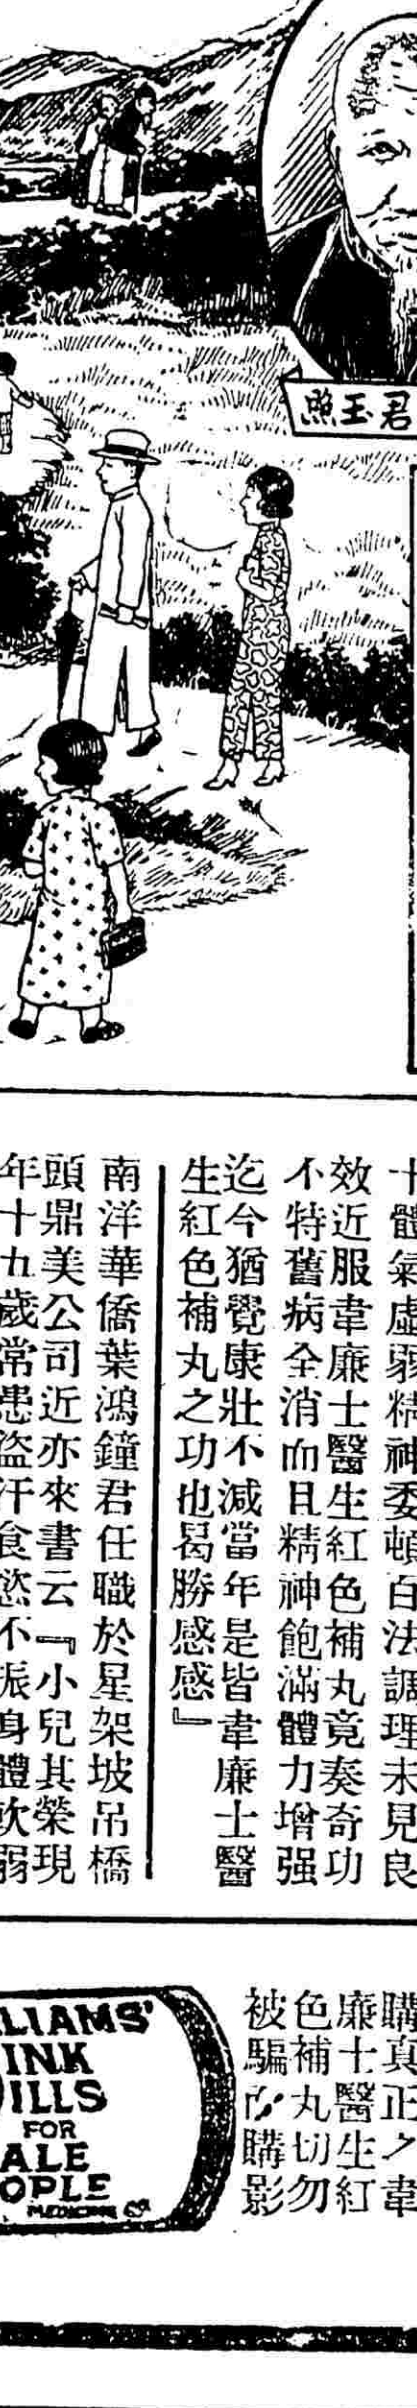 照玉君
十體氣虛弱精神委頓百法調理未見良
效近服韋廉士醫生紅色補丸竟奏奇功
不特舊病全消而且精神飽滿體力增强
迄今猶覺康壯不減當年是皆韋廉士醫
生紅色補丸之功也曷勝感感』
南洋華僑葉鴻鐘君任職於星架坡吊橋
頭鼎美公司近亦來書云『小兒其榮現
年十九歲常患盜汗食慾不振身體軟弱
購真正之韋
廉士醫生紅
色補丸切勿
被騙而購影
LIAMS'
INK
ILLS
FOR
ALE
OPLE
MEDICINE Co